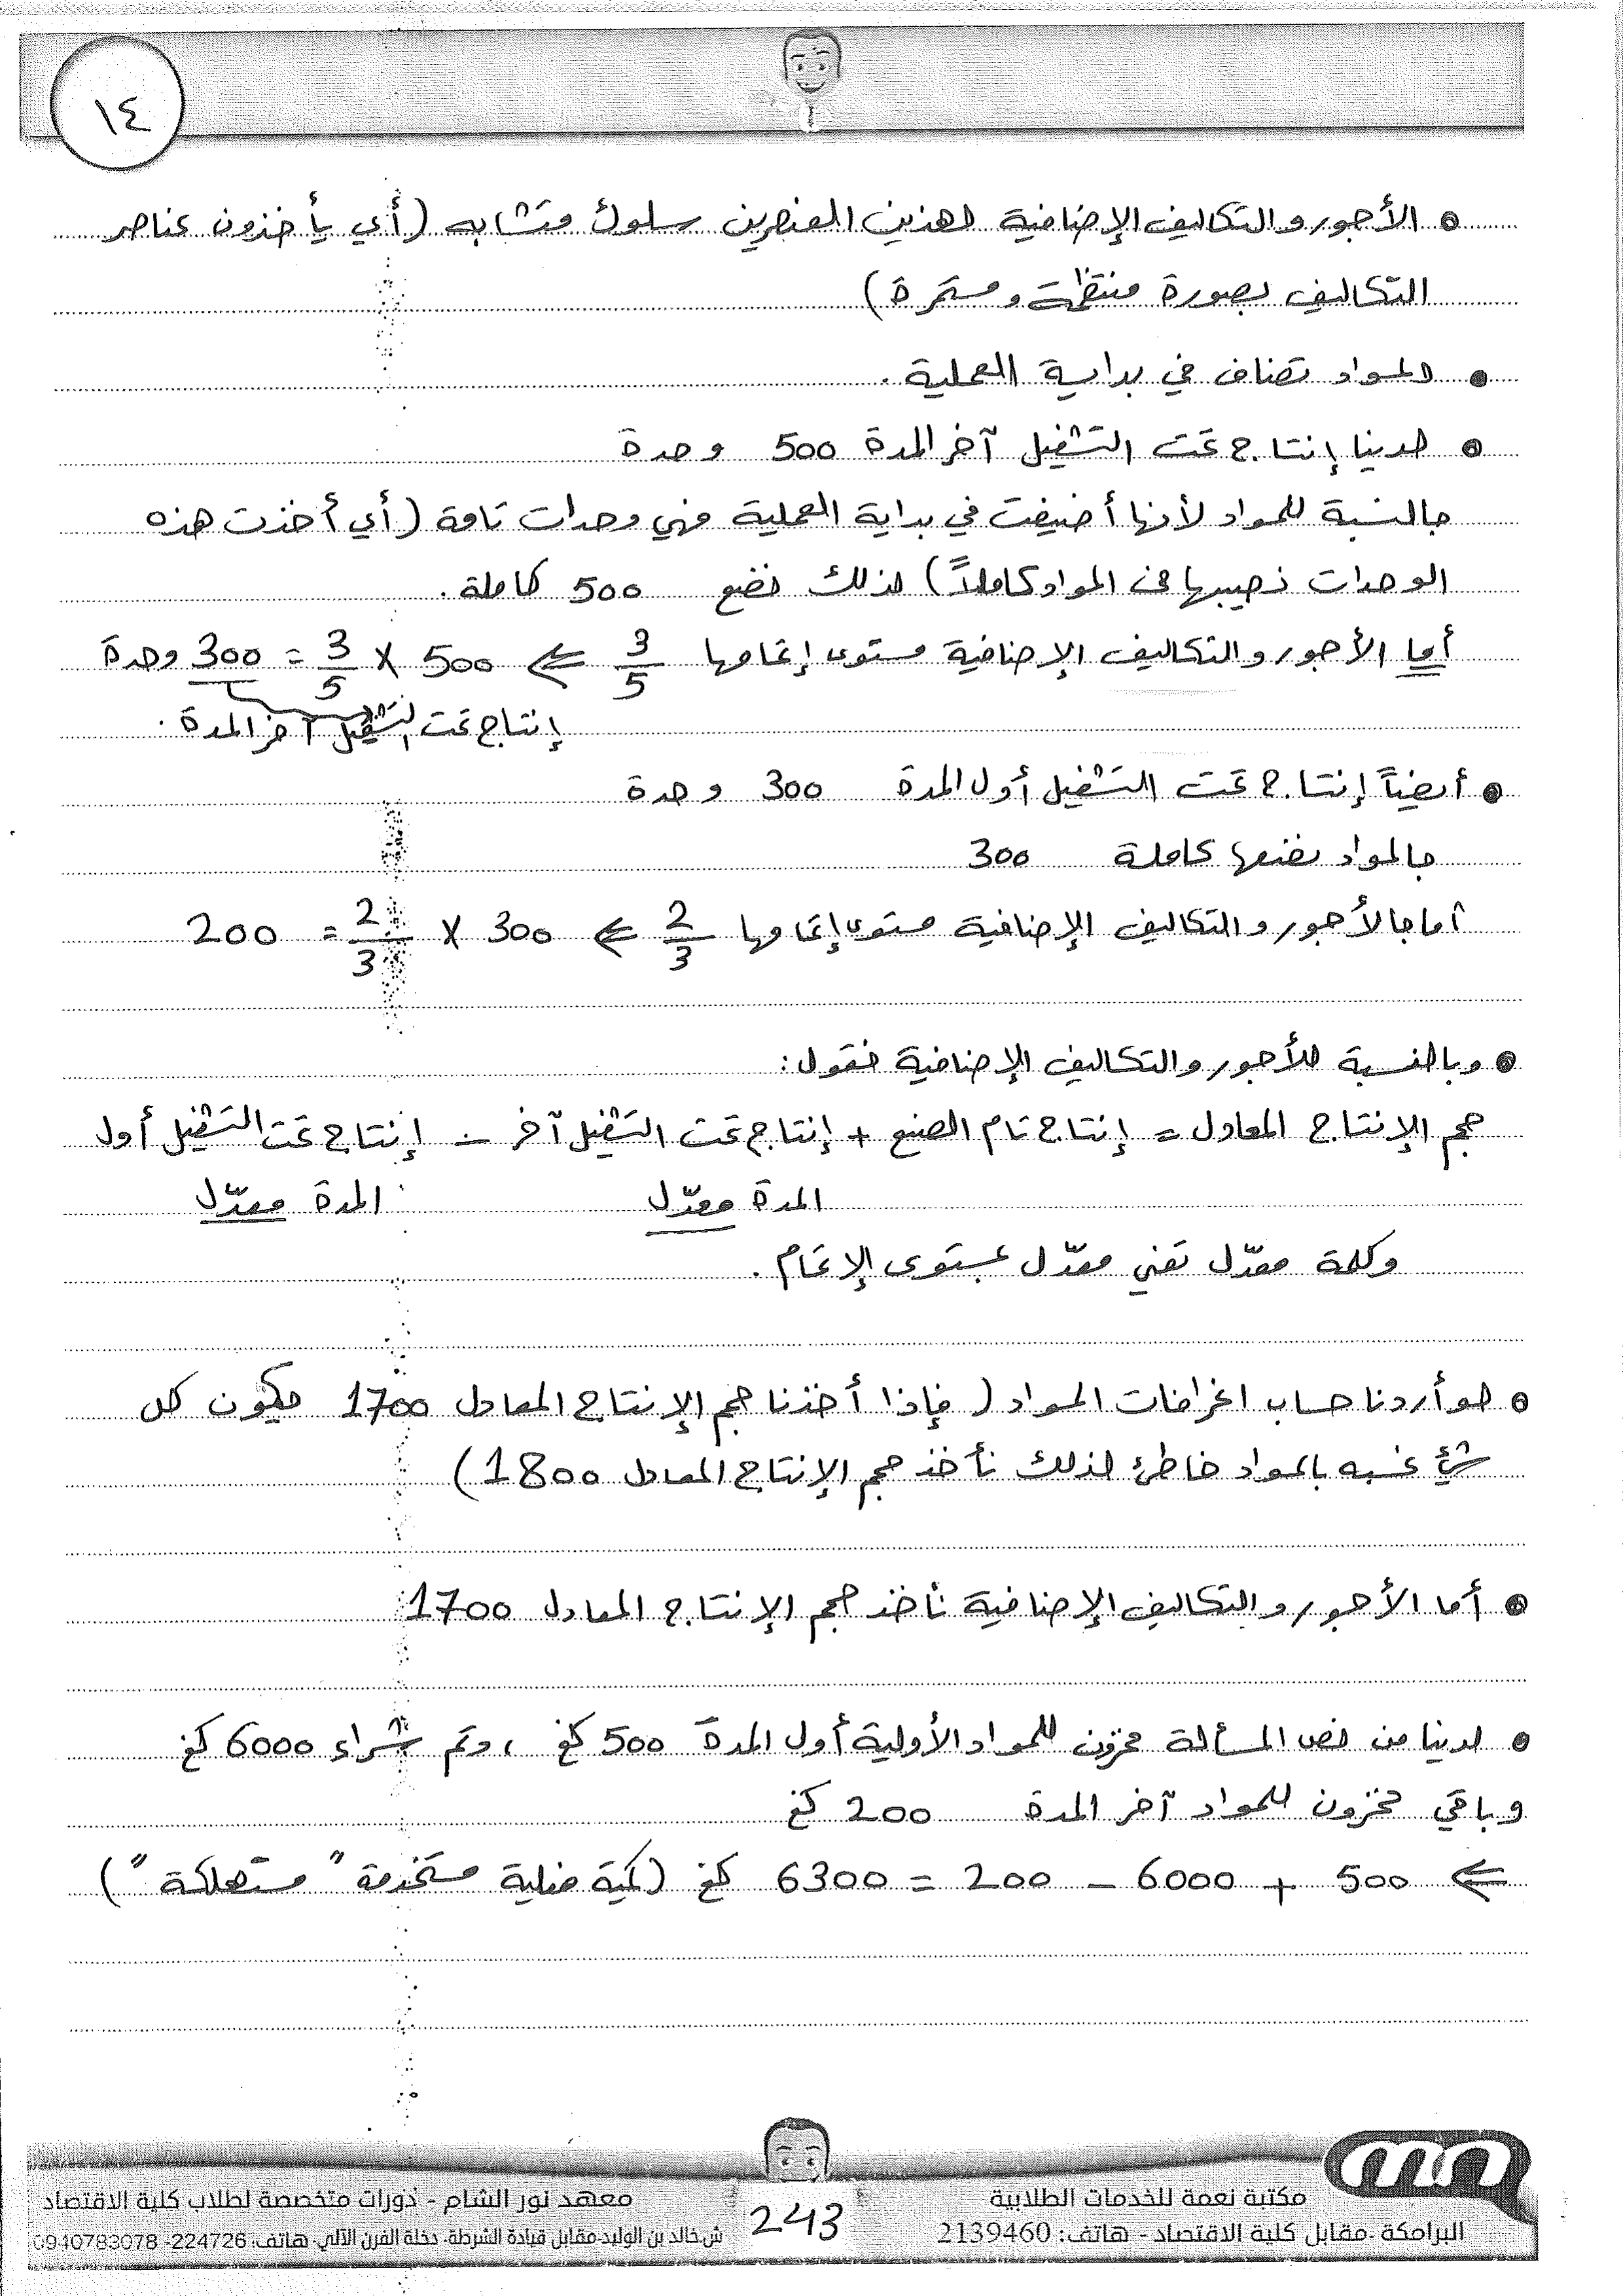 ١٤
• الأجور والتكاليف الإضافية لهذين العنصرين سلوك متشابه (أي يأخذون عناصر
التكاليف بصورة منتظمة ومستمرة)
• المواد تضاف في بداية العملية .
• لدينا إنتاج تحت التشغيل آخر المدة 500 وحدة
بالنسبة للمواد لأنها أضيفت في بداية العملية فهي وحدات تامة (أي أخذت هذه
الوحدات نصيبها من المواد كاملاً) لذلك نضع 500 كاملة .
أما الأجور والتكاليف الإضافية مستوى إتمامها 3/5 ⇐ 500 × 3/5 = 300 وحدة
إنتاج تحت التشغيل آخر المدة .
• أيضاً إنتاج تحت التشغيل أول المدة 300 وحدة
بالمواد نضعها كاملة 300
أما بالأجور والتكاليف الإضافية مستوى إتمامها 2/3 ⇐ 300 × 2/3 = 200
• وبالنسبة للأجور والتكاليف الإضافية نقول :
حجم الإنتاج المعادل = إنتاج تام الصنع + إنتاج تحت التشغيل آخر – إنتاج تحت التشغيل أول
المدة معدّل المدة معدّل
وكلمة معدّل تعني معدّل بمستوى الإتمام .
• لو أردنا حساب انحرافات المواد ( فإذا أخذنا حجم الإنتاج المعادل 1700 فيكون كل
شيء نحسبه بالمواد خاطئ لذلك نأخذ حجم الإنتاج المعادل 1800 )
• أما الأجور والتكاليف الإضافية نأخذ حجم الإنتاج المعادل 1700
• لدينا من نص المسألة مخزون للمواد الأولية أول المدة 500 كغ ، وتم شراء 6000 كغ
وباقي مخزون للمواد آخر المدة 200 كغ
⇐ 500 + 6000 – 200 = 6300 كغ (كمية فعلية مستخدمة " مستهلكة ")
مكتبة نعمة للخدمات الطلابية
البرامكة -مقابل كلية الاقتصاد - هاتف: 2139460
243
معهد نور الشام - دورات متخصصة لطلاب كلية الاقتصاد
ش.خالد بن الوليد-مقابل قيادة الشرطة- دخلة الفرن الآلي- هاتف: 224726- 0940783078